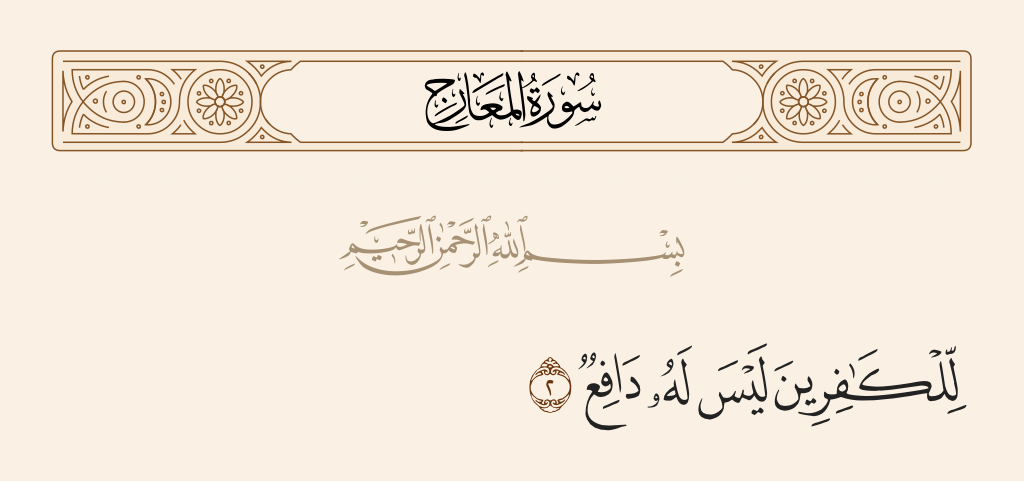 سُورَةُ المَعَارِجِ
بِسْمِ ٱللَّهِ ٱلرَّحْمَٰنِ ٱلرَّحِيمِ
لِّلْكَٰفِرِينَ لَيْسَ لَهُۥ دَافِعٌ ٢